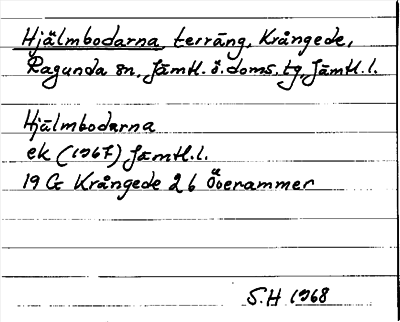 Hjälmbodarna, terräng, Krångede,
Ragunda sn, Jämtl. ö. doms. tg, Jämtl. l.
Hjälmbodarna
ek (1967) Jämtl. l.
19 G Krångede 2 b Överammer
S.H 1968